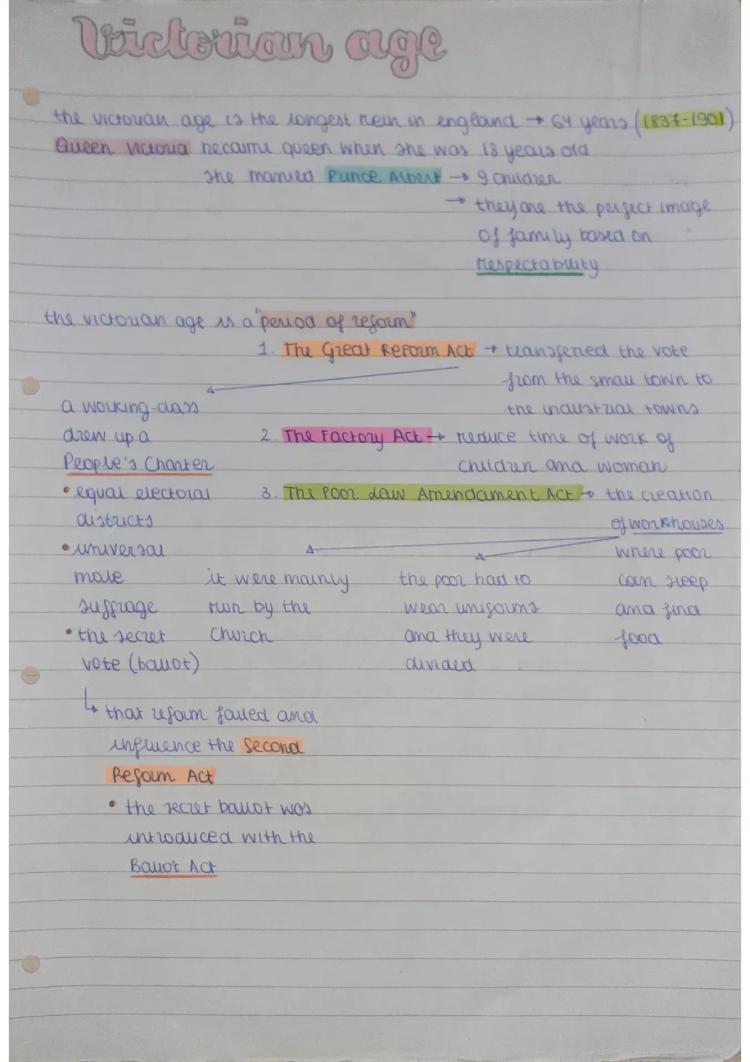 Victorian age
the victorian age is the longest rein in england → 64 years (1837-1901)
Queen Victoria became queen when she was 18 years old
she married Prince Albert → 9 children
→ they are the perfect image
of family based on
respectability
the victorian age is a "period of reform"
1. The Great Reform Act → transferred the vote
from the small town to
the industrial towns
a working-class
drew up a
People's Charter
• equal electoral
districts
• universal
male
suffrage
• the secret
vote (ballot)
↳ that reform failed and
influence the Second
Reform Act
• the secret ballot was
introduced with the
Ballot Act
2. The Factory Act → reduce time of work of
children and woman
3. The Poor Law Amendament Act → the creation
of workhouses
where poor
can sleep
and find
food
it were mainly
run by the
Church
the poor had to
wear uniforms
and they were
divided